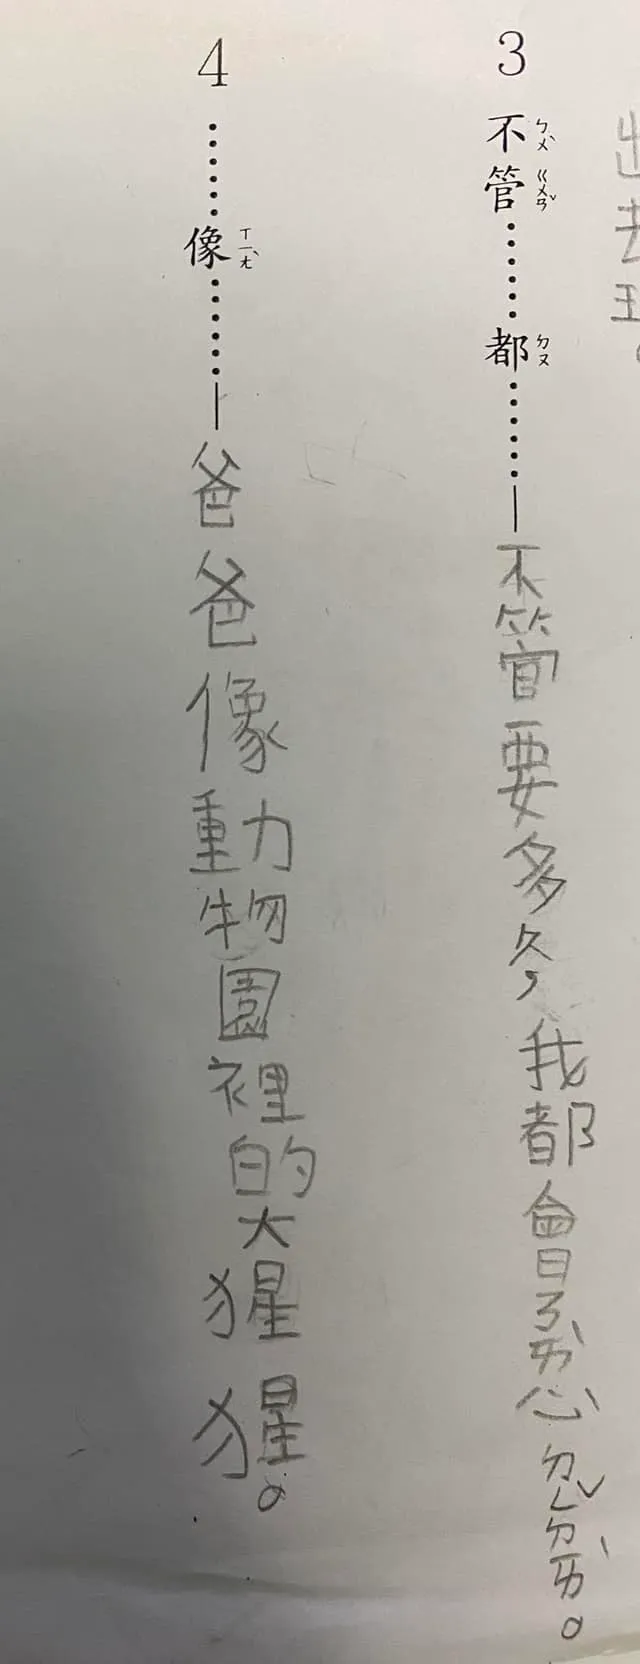 出去玩。
3 不ㄅㄨˋ管ㄍㄨㄢˇ……都ㄉㄡ……—不管要多久,我都會ㄋㄞˋ心ㄉㄥˇㄉㄞˋ。
4 ……像ㄒㄧㄤˋ……—爸爸像動物園裡的大猩猩。